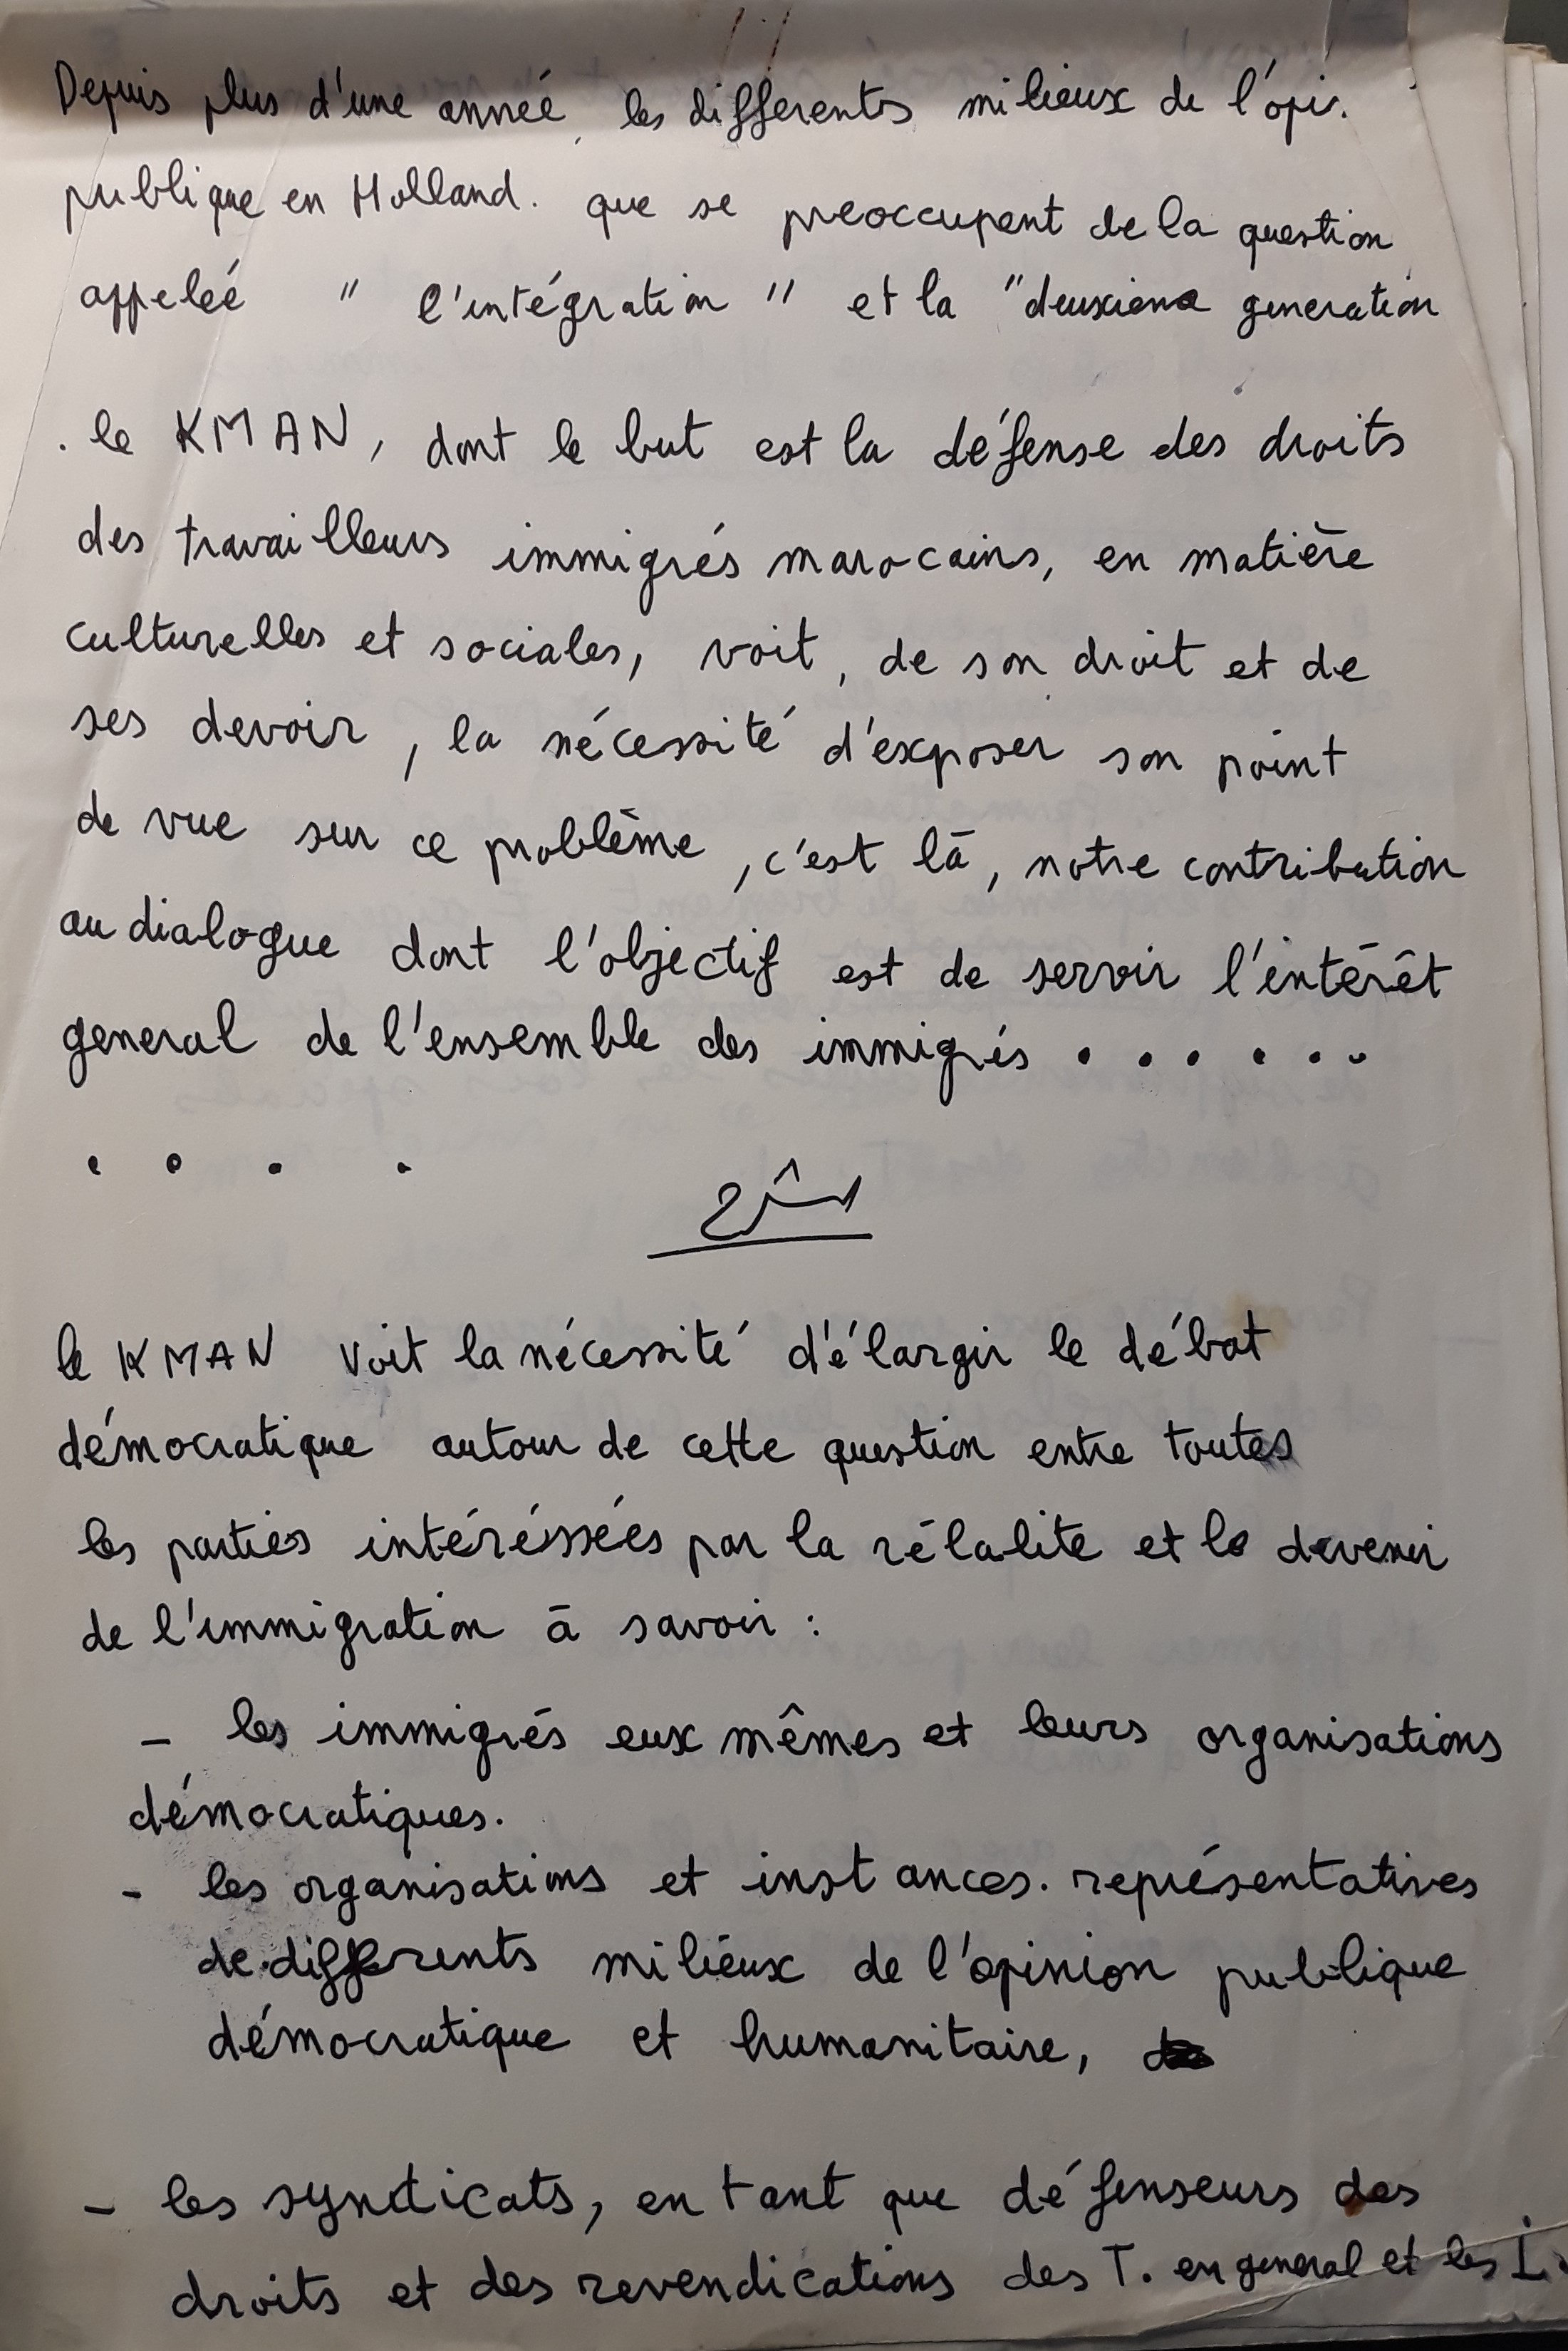 Depuis plus d'une anneé, les differents milieux de l'opi.
publique en Holland. que se preoccupent de la question
appeleé " l'intégration " et la "deuxieme generation
. le KMAN, dont le but est la défense des droits
des travailleurs immigrés marocains, en matière
culturelles et sociales, voit, de son droit et de
ses devoir, la nécessité d'exposer son point
de vue sur ce problème, c'est là, notre contribution
au dialogue dont l'objectif est de servir l'intérêt
general de l'ensemble des immigrés . . . . . .
. . . .
le KMAN voit la nécessité d'élargir le débat
démocratique autour de cette question entre toutes
les parties intéréssées par la rélalite et le devenir
de l'immigration à savoir :
- les immigrés eux mêmes et leurs organisations
démocratiques.
- les organisations et instances. représentatives
de differents milieux de l'opinion publique
démocratique et humanitaire,
- les syndicats, en tant que défenseurs des
droits et des revendications des T. en general et les I.